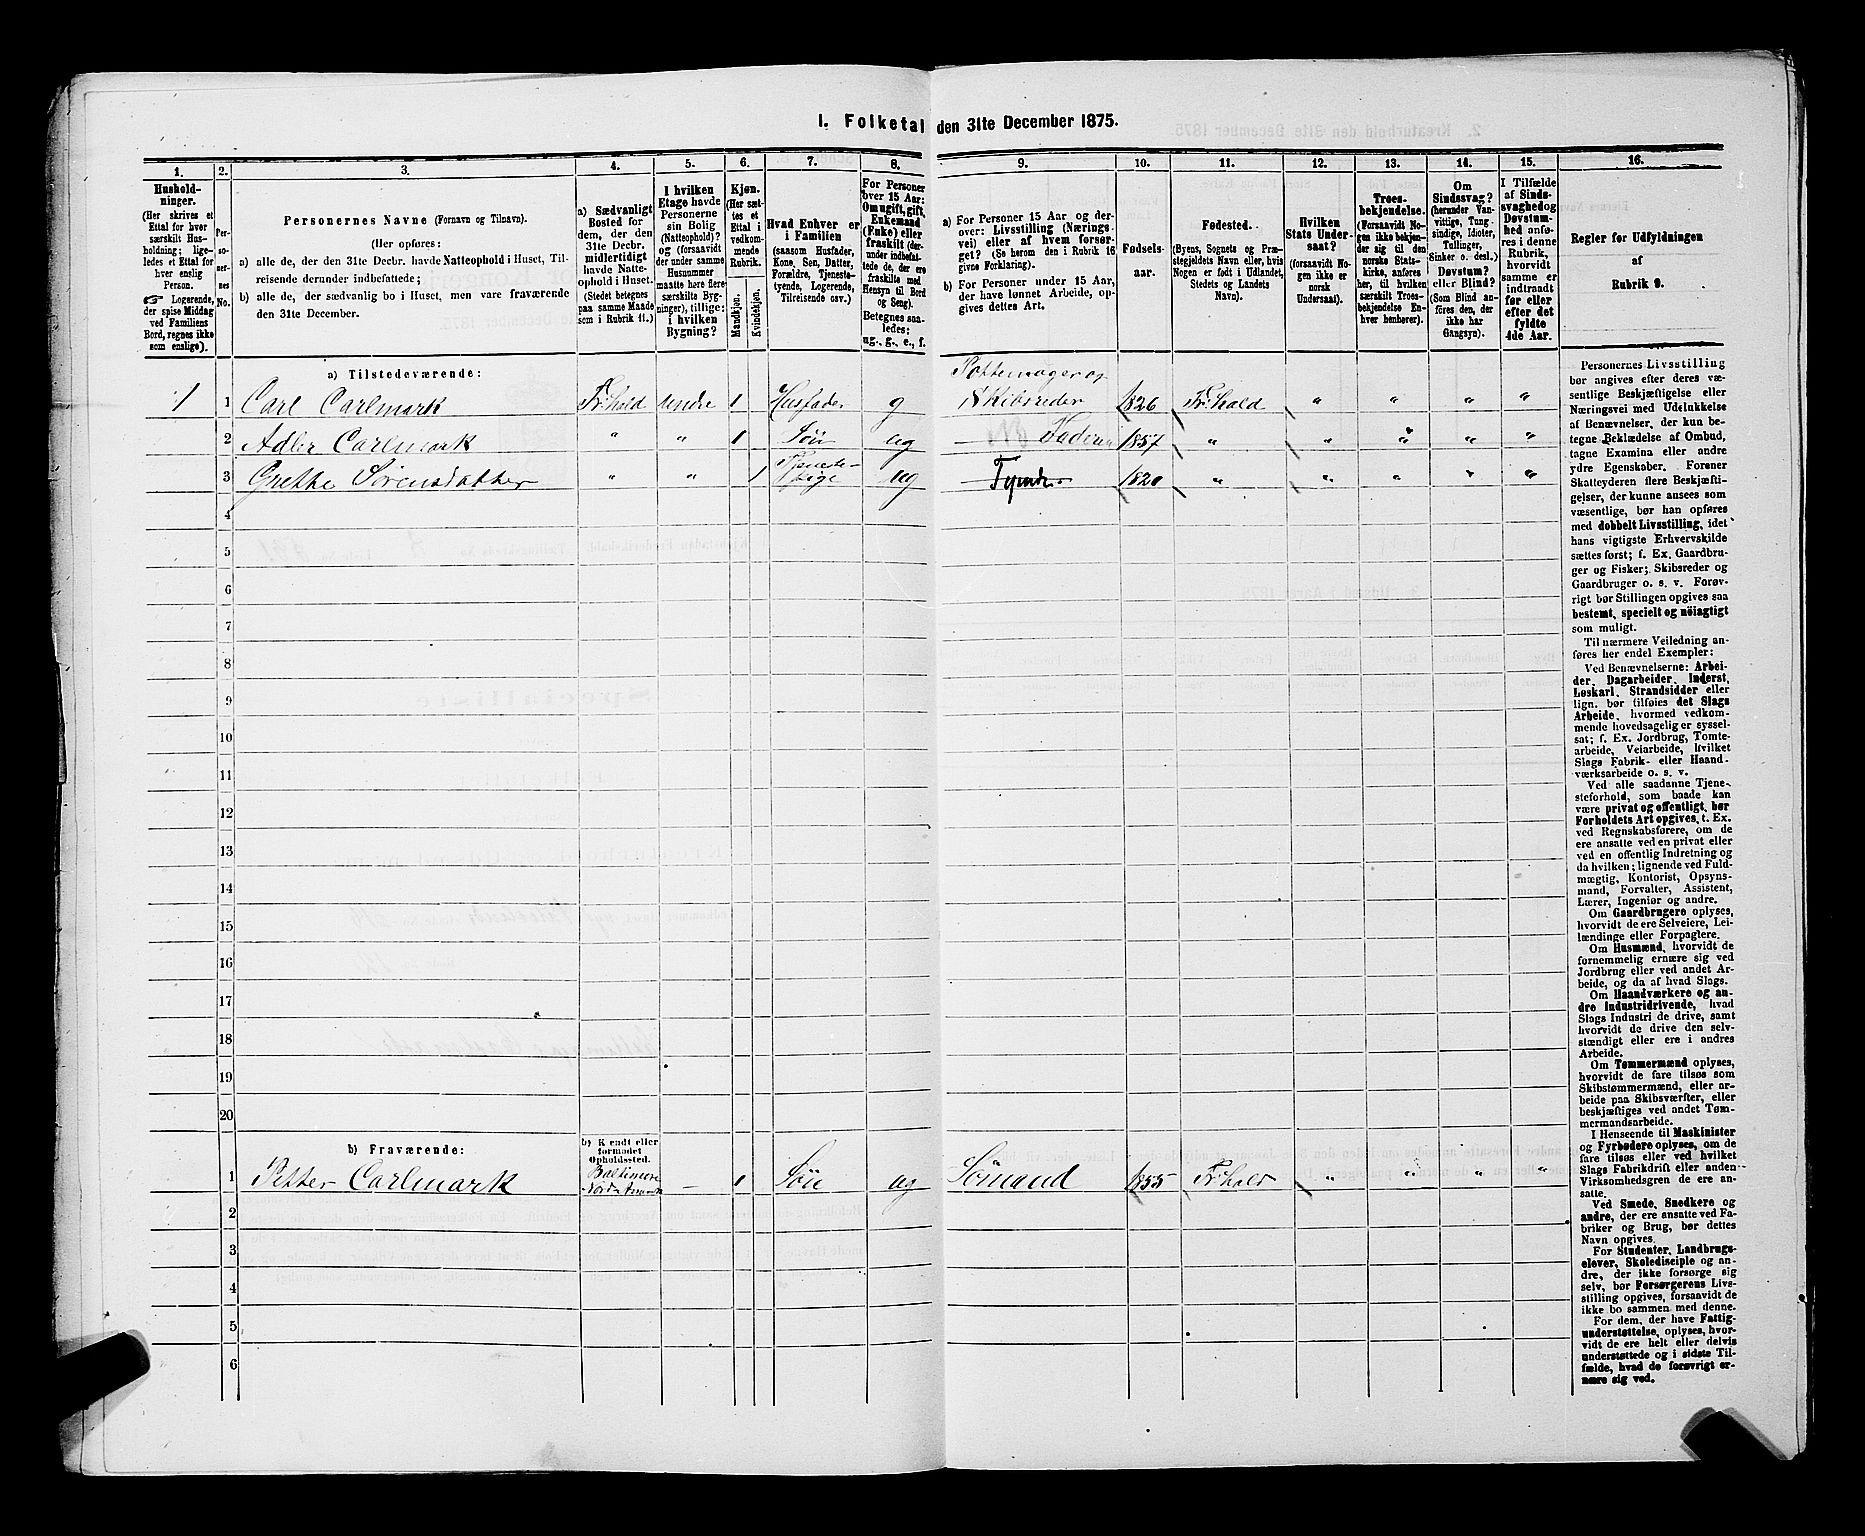 I. Folketal den 31te December 1875.
1. 2. 3. 4. 5. 6. 7. 8. 9. 10. 11. 12. 13. 14. 15. 16.
Hushold-
ninger.
(Her skrives et
Ettal for hver
særskilt Hus-
holdning; lige-
ledes et Ettal for
hver enslig
Person.
☞ Logerende,
der spise Middag
ved Familiens
Bord, regnes ikke
som enslige).
Per-
so-
ner-
nes
No.
Personernes Navne (Fornavn og Tilnavn).
(Her opføres:
a) alle de, der den 31te Decbr. havde Natteophold i Huset, Til-
reisende derunder indbefattede;
b) alle de, der sædvanlig bo i Huset, men vare fraværende
den 31te December.
a) Sædvanligt
Bosted for
dem, der den
31te Decbr.
midlertidigt
havde Natte-
ophold i Huset.
(Stedet betegnes
paa samme Maade
som i Rubrik 11.)
I hvilken
Etage havde
Personerne
sin Bolig
(Natteophold)?
(forsaavidt
der under samme
Husnummer
maatte høre flere
særskilte Byg-
ninger), tillige:
i hvilken
Bygning?
Kjøn.
(Her sæt-
tes et
Ettal i
vedkom-
mende
Rubrik.
Mandkjøn.
Kvindekjøn.
Hvad Enhver er
i Familien
(saasom Husfader,
Kone, Søn, Datter,
Forældre, Tjeneste-
tyende, Logerende,
Tilreisende osv.)
For Personer
over 15 Aar:
Om ugift, gift,
Enkemand
(Enke) eller
fraskilt (der-
under indbefat-
tede de, der ere
fraskilte med
Hensyn til Bord
og Seng).
Betegnes saa-
ledes:
ug., g., e., f.
a) For Personer 15 Aar og der-
over: Livsstilling (Nærings-
vei) eller af hvem forsør-
get? (Se herom den i Rubrik 16
givne Forklaring).
b) For Personer under 15 Aar,
der have lønnet Arbeide, op-
gives dettes Art.
Fødsels-
aar.
Fødested.
(Byens, Sognets og Præ-
stegjeldets Navn eller, hvis
Nogen er født i Udlandet,
Stedets og Landets
Navn).
Hvilken
Stats Under-
saat?
(forsaavidt No-
gen ikke er
norsk
Undersaat).
Troes-
bekjendelse.
(Forsaavidt No-
gen ikke bekjen-
der sig til den
norske Stats-
kirke, anføres
her, til hvilket
særskilt Troes-
bekjendelse En-
hver henhører).
Om
Sindssvag?
(herunder Van-
vittige, Tung-
sindige, Idioter,
Tullinger,
Sinker o. desl.)
Døvstum?
eller Blind?
(Som Blind an-
føres den, der
ikke har
Gangsyn).
I Tilfælde
af Sinds-
svaghed og
Døvstum-
hed anfø-
res i denne
Rubrik,
hvorvidt
samme er
indtraadt
før eller
efter det
fyldte
4de Aar.
Regler for Udfyldningen
af
Rubrik 9.
a) Tilstedeværende:
1 1 Carl Carlmark Fr:hald Undre 1 Husfader g Pottemager og
Skibsreder 1826 Fr:hald " " " "
2 Adler Carlmark " " 1 Søn ug 1857 " " " " "
3 Grethe Sørensdatter " " 1 Tjeneste-
pige ug Tjende 1820 " " " " "
4
5
6
7
8
9
10
11
12
13
14
15
16
17
18
19
20
b) Fraværende:
b) Kendt eller
formodet
Opholdssted.
1 Petter Carlmark Baltimore
Nord Amerika — 1 Søn ug Sømand 1855 Fr:hald " " " "
2
3
4
5
6
Personernes Livsstilling
bør angives efter deres væ-
sentlige Beskjæftigelse eller
Næringsvei med Udelukkelse
af Benævnelser, der kun be-
tegne Beklædelse af Ombud,
tagne Examina eller andre
ydre Egenskaber. Forener
Skatteyderen flere Beskjæfti-
gelser, der kunne ansees som
væsentlige, bør han opføres
med dobbelt Livsstilling, idet
hans vigtigste Erhvervskilde
sættes først; f. Ex. Gaardbru-
ger og Fisker; Skibsreder og
Gaardbruger o. s. v. Forøv-
rigt bør Stillingen opgives saa
bestemt, specielt og nøiagtigt
som muligt.
Til nærmere Veiledning an-
føres her endel Exempler:
Ved Benævnelserne: Arbei-
der, Dagarbeider, Inderst,
Løskarl, Strandsidder eller
lign. bør tilføies det Slags
Arbeide, hvormed vedkom-
mende hovedsagelig er syssel-
sat; f. Ex. Jordbrug, Tomte-
arbeide, Veiarbeide, hvilket
Slags Fabrik- eller Haand-
værksarbeide o. s. v.
Ved alle saadanne Tjene-
steforhold, som baade kan
være privat og offentligt, bør
Forholdets Art opgives, t. Ex.
ved Regnskabsførere, om de
ere ansatte ved en privat eller
ved en offentlig Indretning og
da hvilken; lignende ved Fuld-
mægtig, Kontorist, Opsyns-
mand, Forvalter, Assistent,
Lærer, Ingeniør og andre.
Om Gaardbrugere oplyses,
hvorvidt de ere Selveiere, Lei-
lændinge eller Forpagtere.
Om Husmænd, hvorvidt de
fornemmelig ernære sig ved
Jordbrug eller ved andet Ar-
beide, og da af hvad Slags.
Om Haandværkere og an-
dre Industridrivende, hvad
Slags Industri de drive, samt
hvorvidt de drive den selv-
stændigt eller ere i andres
Arbeide.
Om Tømmermænd oplyses,
hvorvidt de fare tilsøs som
Skibstømmermænd, eller ar-
beide paa Skibsværfter, eller
beskjæftiges ved andet Tøm-
mermandsarbeide.
I Henseende til Maskinister
og Fyrbødere oplyses, om de
fare tilsøs eller ved hvilket
Slags Fabrikdrift eller anden
Virksomhedsgren de ere an-
satte.
Ved Smede, Snedkere og
andre, der ere ansatte ved Fa-
briker og Brug, bør dettes
Navn opgives.
For Studenter, Landbrugs-
elever, Skoledisciple og an-
dre, der ikke forsørge sig
selv, bør Forsørgerens Livs-
stilling opgives, forsaavidt de
ikke bo sammen med denne.
For dem, der have Fattig-
understøttelse, oplyses, hvor-
vidt de ere helt eller delvis
understøttede og i sidste Til-
fælde, hvad de forøvrigt er-
nære sig ved.